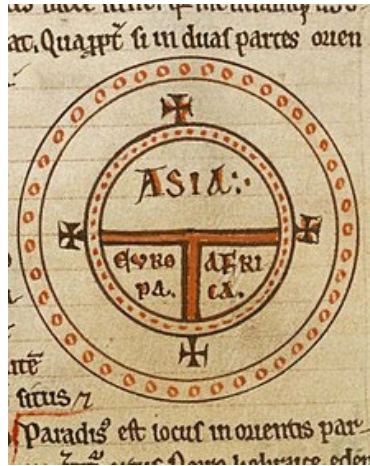 at. Quapp̄t si in duas partes orien
ASIA:·
EVRO
PA.
AFRI
CA.
situs
Paradis᷒ est locus in orientis par